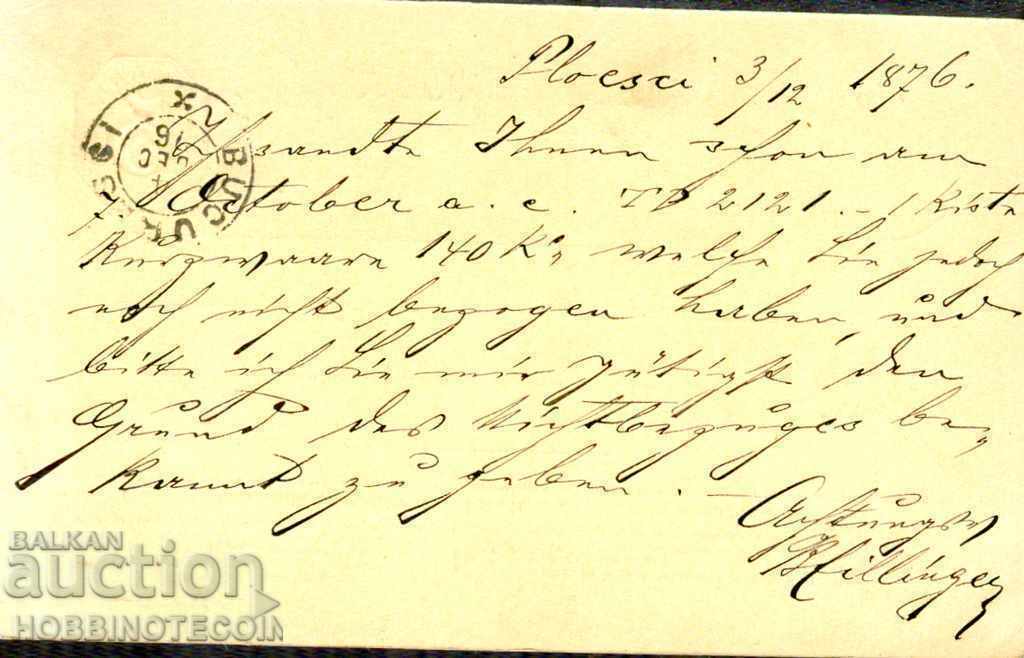 Ploesci 3/12 1876.
Ich sandte Ihnen schon am
7. October a. c. TD 2121. – 1 Kiste
Kurzwaare 140 K°, welche Sie jedoch
noch nicht bezogen haben, und
bitte ich Sie mir gütigst den
Grund des Nichtbezuges be„
kannt zu geben. –
Achtungsv
Hillinger
BUCURESCI
BALKAN
auction
HOBBINOTECOIN